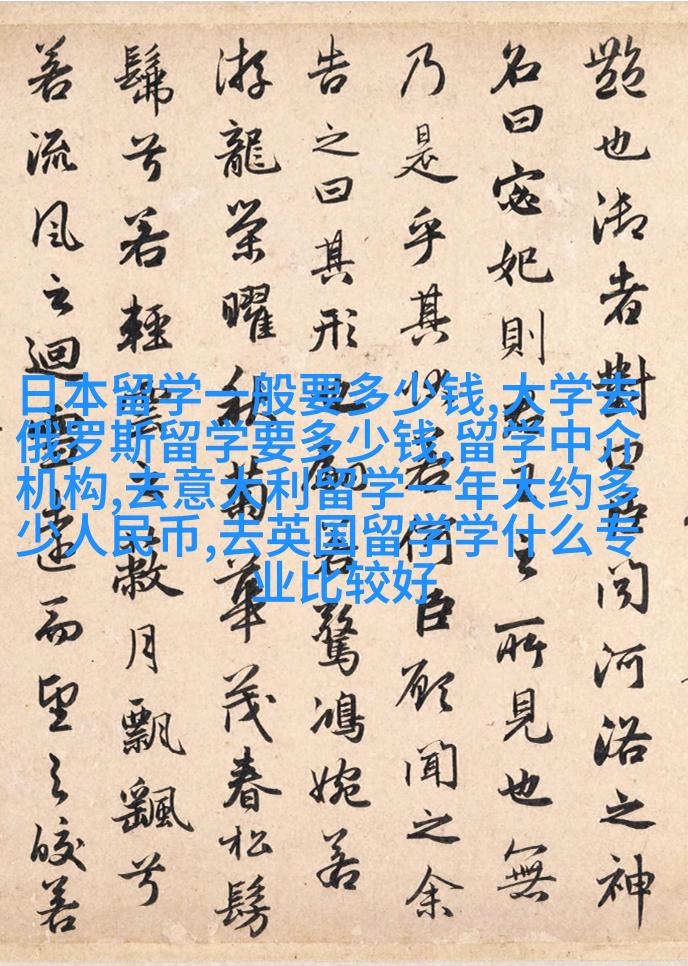 艷也御者對曰臣聞河洛之神
名曰宓妃則君王之所見也無
乃是乎其狀若何臣願聞之余
告之曰其形也翩若驚鴻婉若
游龍榮曜秋菊華茂春松髣
髴兮若輕雲之蔽月飄颻兮
若流風之迴雪遠而望之皎若
日本留学一般要多少钱,大学去
俄罗斯留学要多少钱,留学中介
机构,去意大利留学一年大约多
少人民币,去英国留学学什么专
业比较好